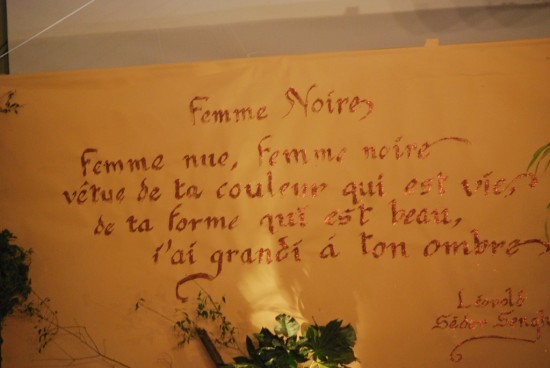 Femme Noire
Femme nue, Femme noire
vétue de ta couleur qui est vie,
de ta forme qui est beau,
j'ai grandi á ton ombre
Léopold
Sédar Sengh